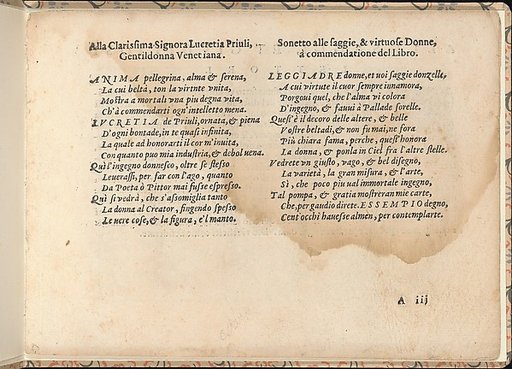 Alla Clarissima Signora Lucretia Priuli,
Gentildonna Venetiana.
ANIMA pellegrina, alma & serena,
La cui beltà, con la virtute vnita,
Mostra a mortali vna piu degna vita,
Ch'à commendarti ogn'intelletto mena.
LVCRETIA de Priuli, ornata, & piena
D'ogni bontade, in te quasi infinita,
La quale ad honorarti il cor m'inuita,
Con quanto puo mia industria, & debol uena.
Quì l'ingegno donnesco, oltre se stesso
Leuerassi, per far con l'ago, quanto
Da Poeta ò Pittor mai fusse espresso.
Quì si vedrà, che s'assomiglia tanto
La donna al Creator, fingendo spesso
Le vere cose, & la figura, e'l manto.
Sonetto alle saggie, & virtuose Donne,
à commendatione del Libro.
LEGGIADRE donne, et uoi saggie donzelle,
A cui virtute il cuor sempre innamora,
Porgoui quel, che l'alma vi colora
D'ingegno, & fauui à Pallade sorelle.
Quest'è il decoro delle altere, & belle
Vostre beltadi, & non fu mai, ne fora
Più chiara fama, perche, quest'honora
La donna, & ponla in Ciel fra l'altre stelle.
Vedrete vn giusto, vago, & bel disegno,
La varietà, la gran misura, & l'arte,
Sì, che poco piu ual immortale ingegno,
Tal pompa, & gratia mostreran mie carte,
Che, per gaudio direte. ESSEMPIO degno,
Cent'occhi hauesse almen, per contemplarte.
A iij